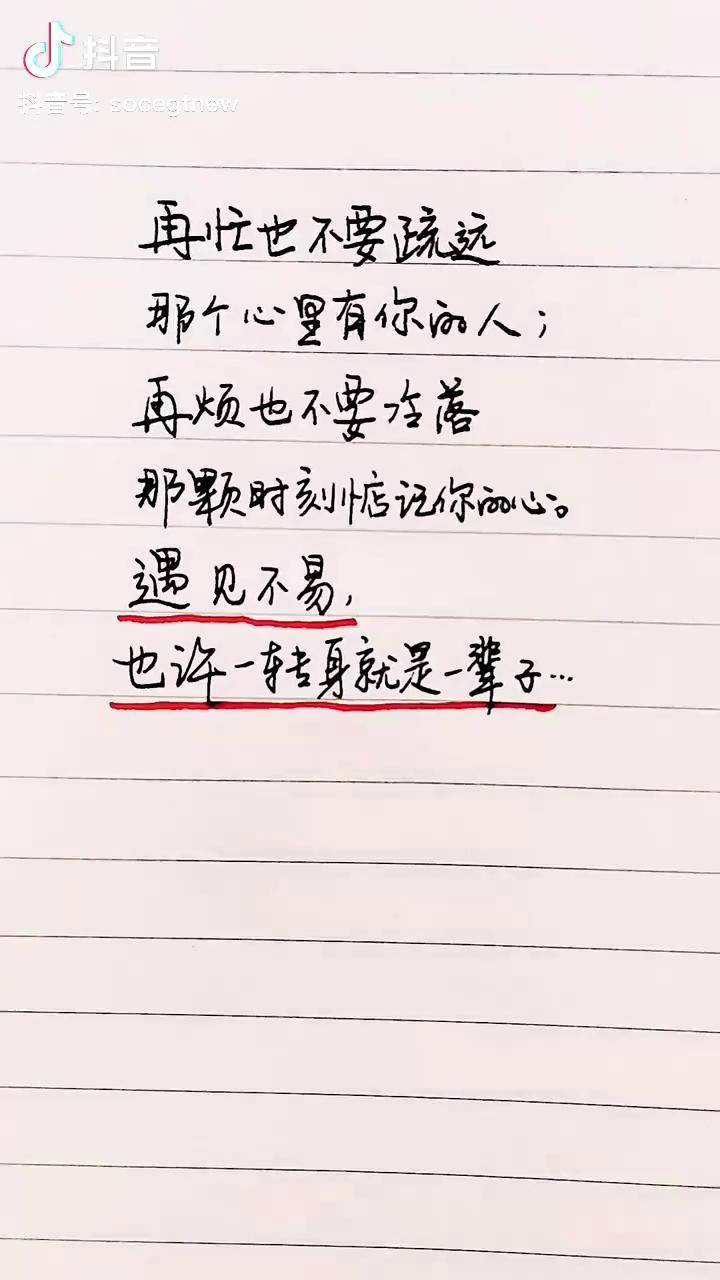 抖音
抖音号: socegtnew
再忙也不要疏远
那个心里有你的人;
再烦也不要冷落
那颗时刻惦记你的心。
遇见不易,
也许一转身就是一辈子…